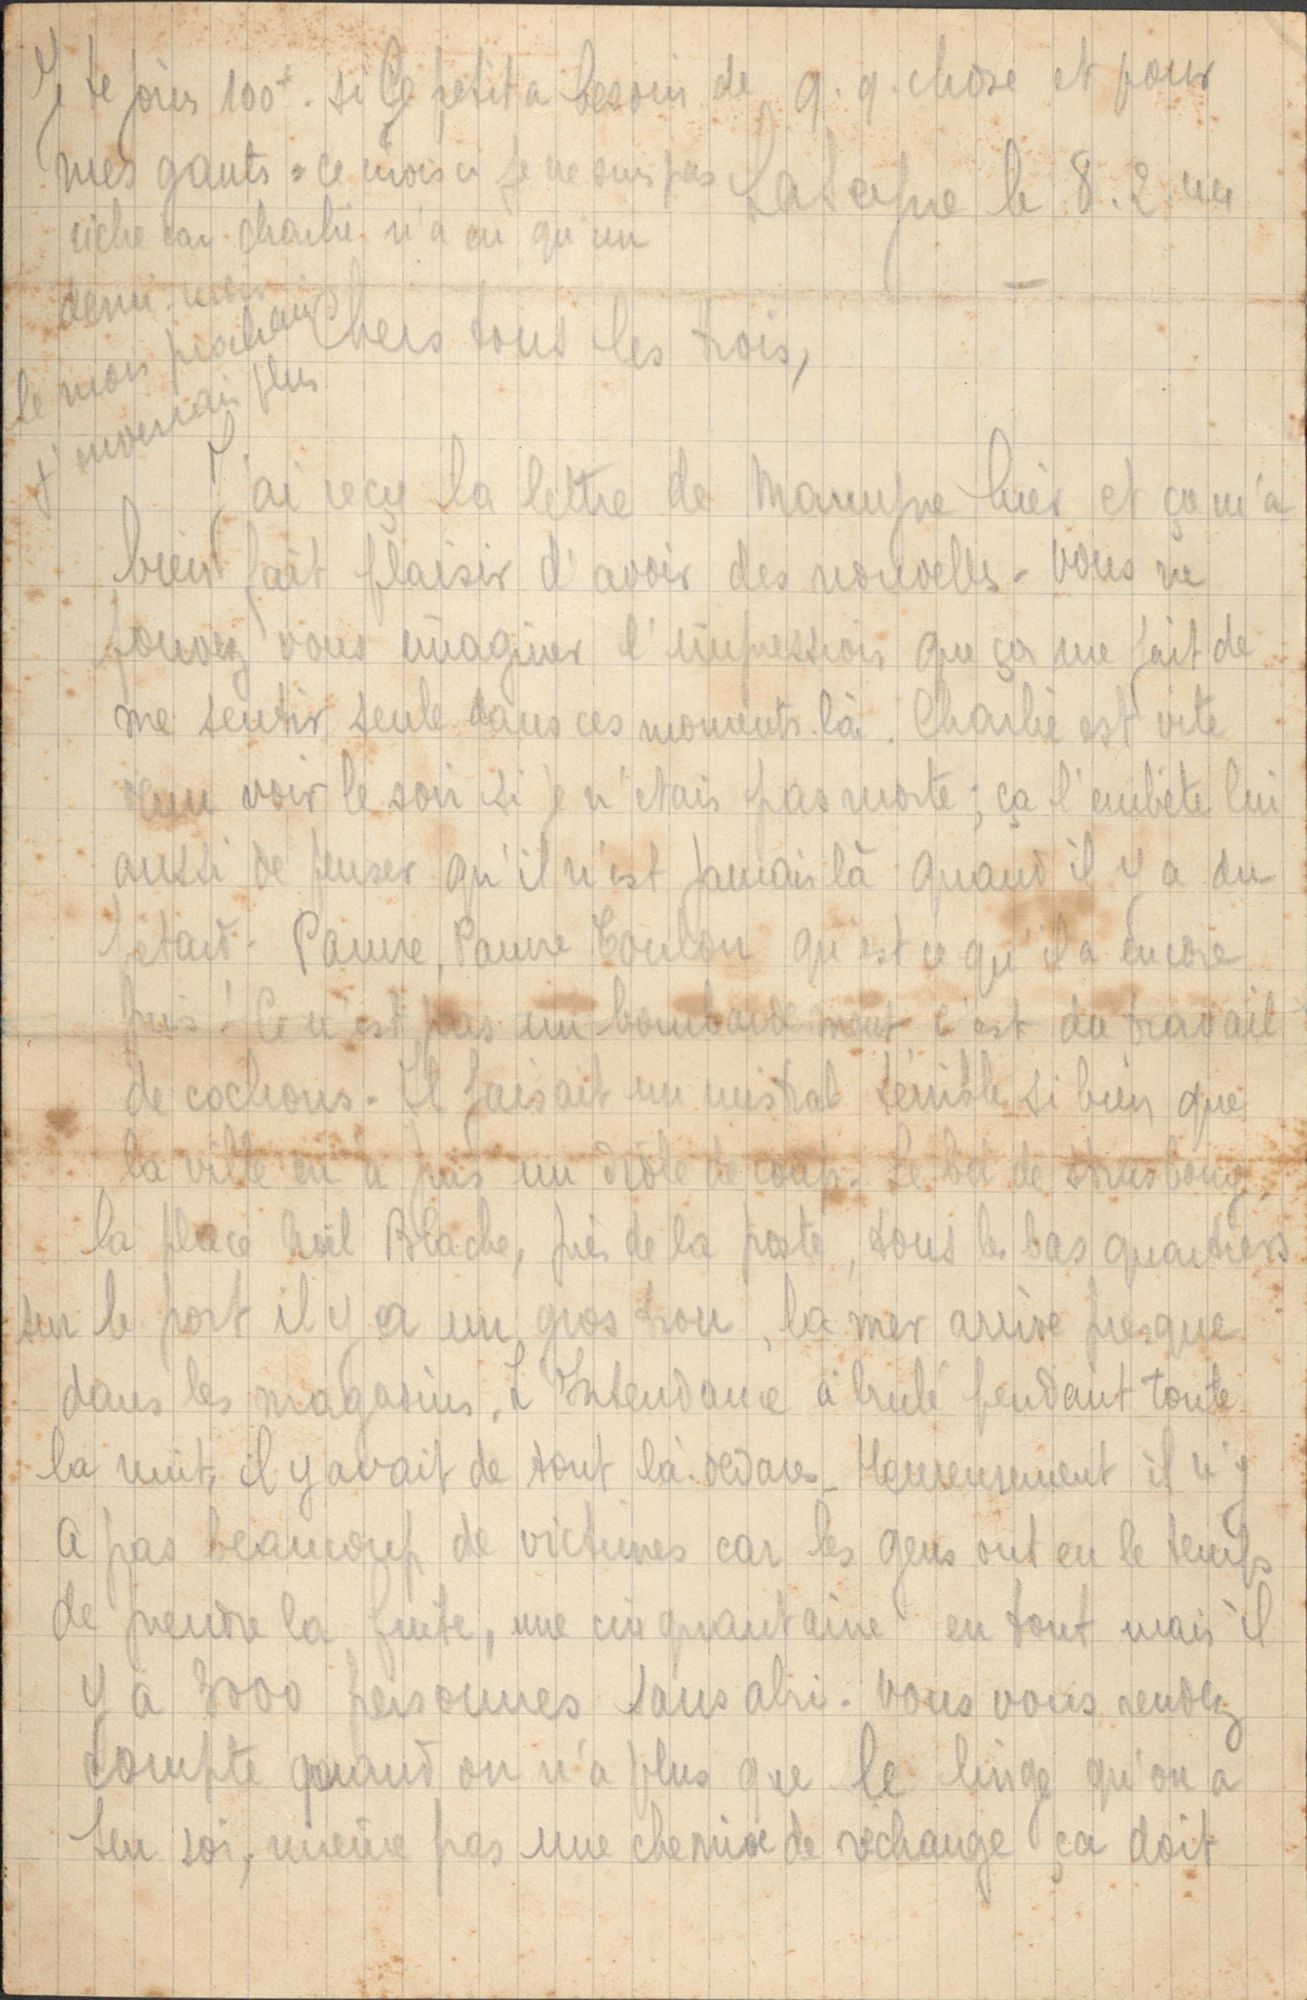 Je te joins 100f. si le petit a besoin de q.q. chose et pour
mes gants. ce mois ci je ne suis pas
riche car Charlie n'a eu qu'un
demi-mois
le mois prochain
j'enverrais plus
le 8.2.44
Chers tous les trois,
J'ai reçu la lettre de hier et ça m'a
bien fait plaisir d'avoir des nouvelles. Vous ne
pouvez vous imaginer l'impression que ça me fait de
me sentir seule dans ces moments là. Charlie est vite
venu voir le soir si je n'étais pas morte; ça l'embête lui
aussi de penser qu'il n'est jamais là quand il y a du
pétard. Pauvre, Pauvre Toulon qu'est ce qu'il a encore
pris! Ce n'est pas un bombardement c'est du travail
de cochons. Il faisait un mistral terrible si bien que
la ville en a pris un drôle de coup. Le bd de Strasbourg
la place Noël Blache, près de la poste, tous les bas quartiers
sur le port il y a un gros trou, la mer arrive presque
dans les magasins. L'Intendance a brulé pendant toute
la nuit, il y avait de tout là-dedans. Heureusement il n'y
a pas beaucoup de victimes car les gens ont eu le temps
de prendre la fuite, une cinquantaine en tout mais il
y a 3000 personnes sans abri. Vous vous rendez
compte quand on n'a plus que le linge qu'on a
sur soi, même pas une chemise de rechange ça doit